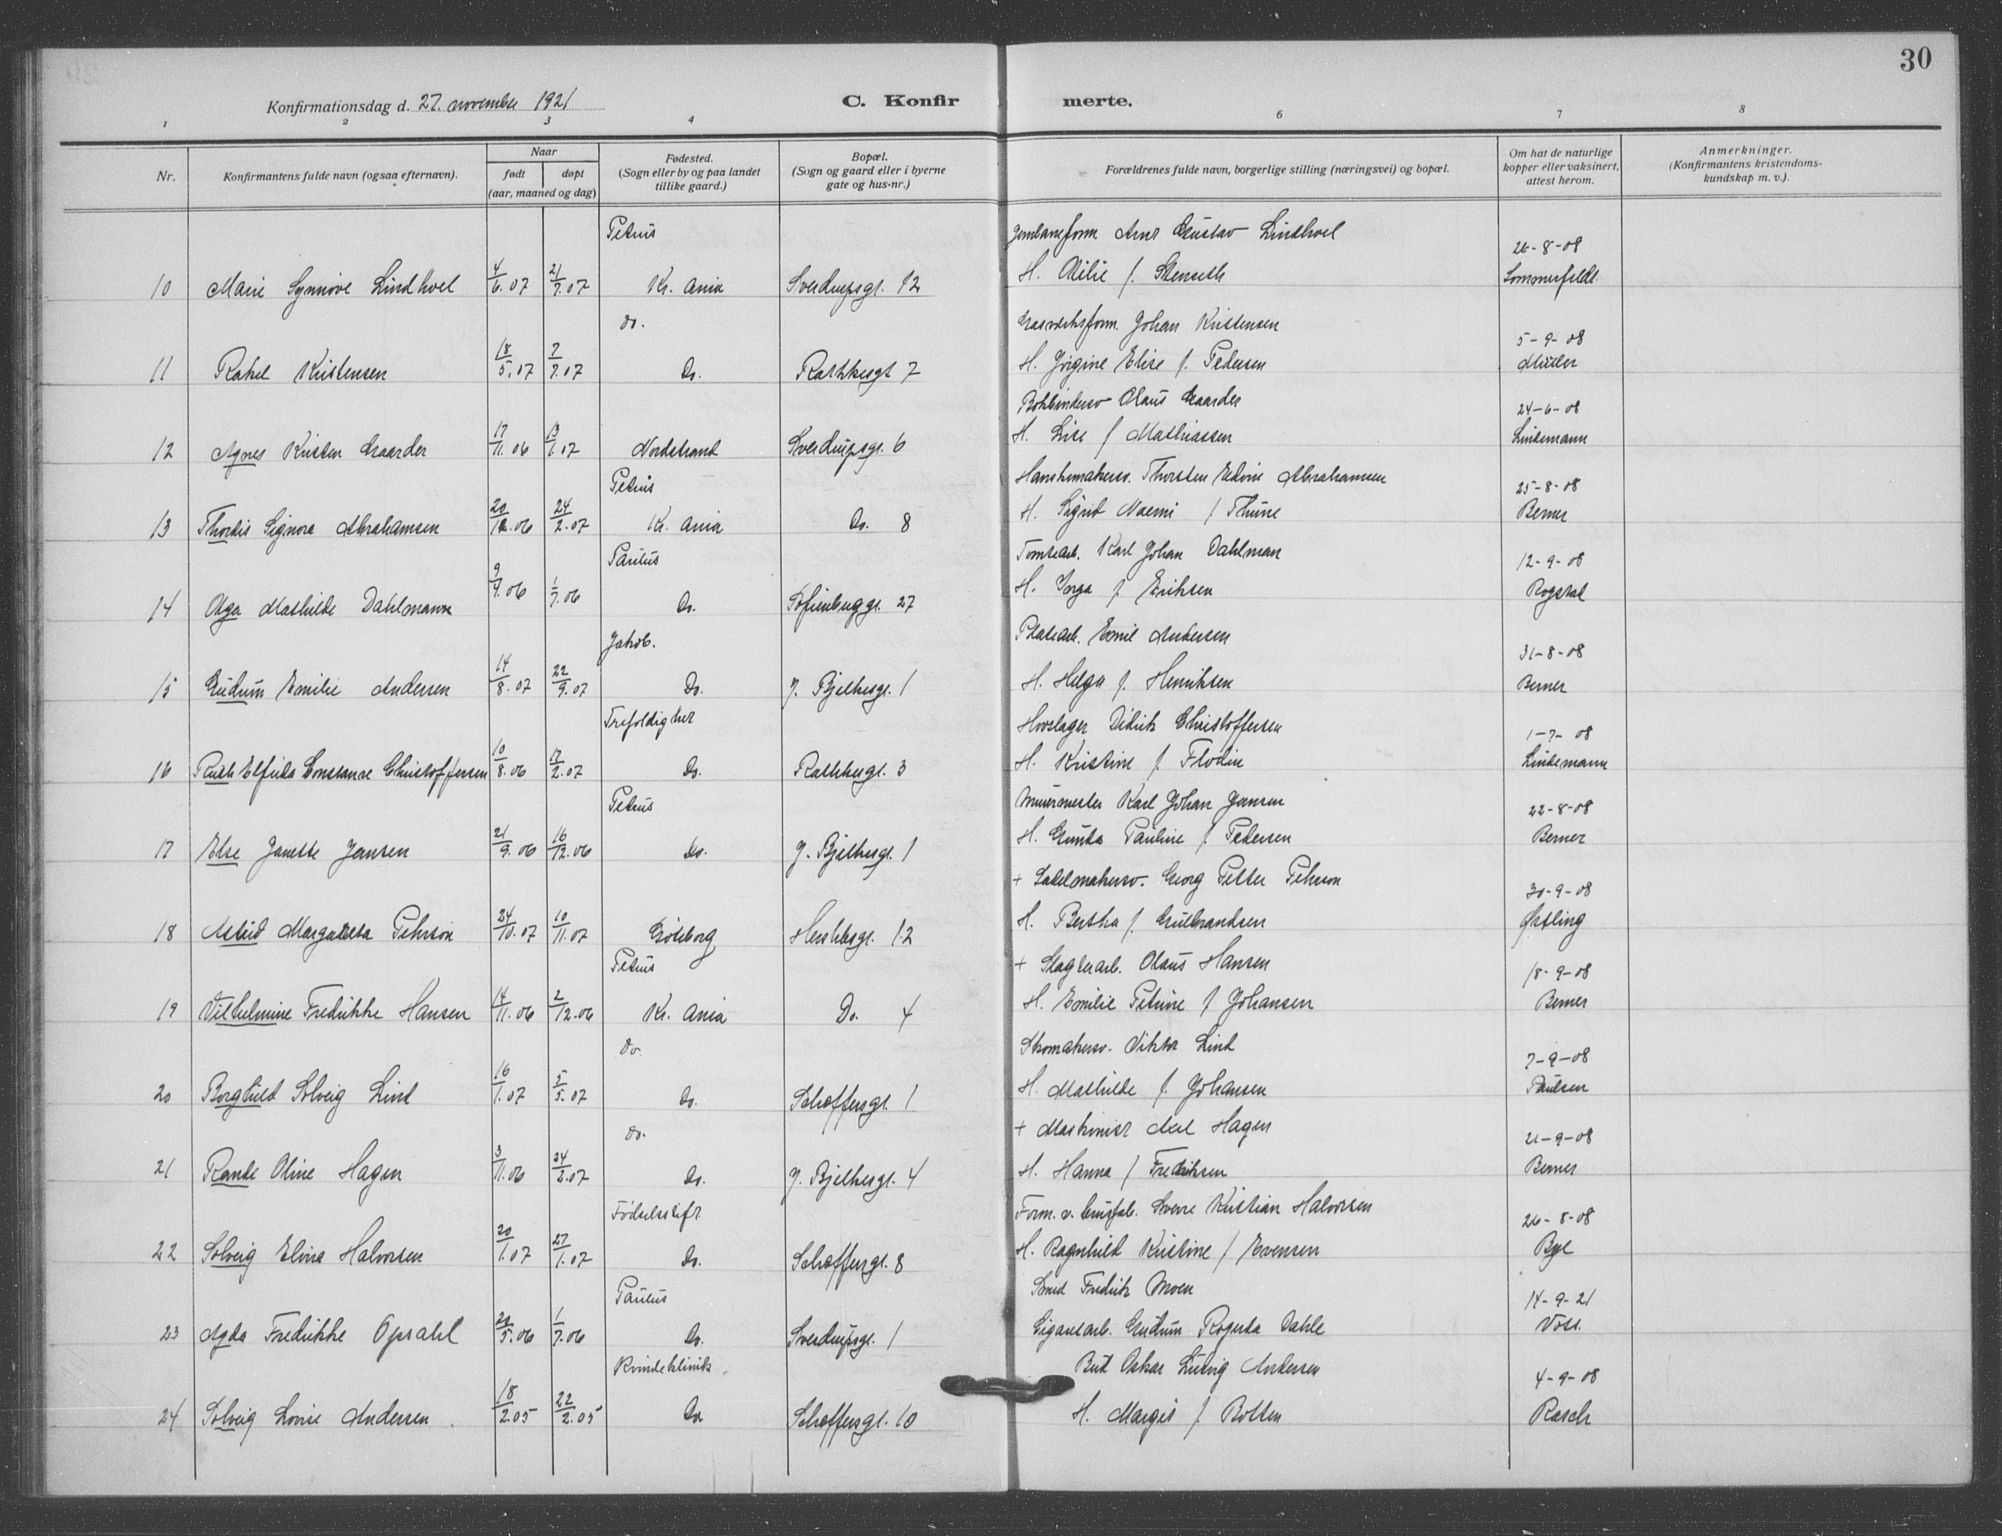 30
Konfirmationsdag d. 27. november 1921 C. Konfir merte.
1 2 3 4 6 7 8
Nr. Konfirmantens fulde navn (ogsaa efternavn). Naar født døpt (aar, maaned og dag) Fødested. (Sogn eller by og paa landet tillike gaard.) Bopæl. (Sogn og gaard eller i byerne gate og hus-nr.) Forældrenes fulde navn, borgerlige stilling (næringsvei) og bopæl. Om hat de naturlige kopper eller vaksinert, attest herom. Anmerkninger. (Konfirmantens kristendoms-kundskap m. v.).
Petrus Gustav Lindhoel 26-8-08
10 Marie Synnøve Lindhoel 4/6.07 21/7.07 Kr. ania Sverdrupsgt. 12 H. f. Stenseth Sommerfeldt
do. Johan Kristensen 5-9-08
11 Rakel Kristensen 18/5.07 7/7.07 Do. Rathkesgt 7 H. Jørgine Elise f. Pedersen Müller
Bokbindersv Olaus Gaarder 24-6-08
12 Agnes Kirsten Gaarder 17/11.06 13/1.07 Nordstrand Sverdrupsgt. 6 H. Lise f Mathiassen Lindemann
Petrus Hanskemakersv. Thorsten Edvin Abrahamsen 25-8-08
13 Thordis Signora Abrahamsen 20/12.06 24/2.07 Kr. Ania Do. 8 H. Sigrid Naemi f Thune Berner
Paulus Tomtearb. Karl Johan Dahlman 12-9-08
14 Olga Mathilde Dahlmann 9/9.06 1/7.06 Do. Sofienberggt. 27 H. Inga f Eriksen Rogstad
Jakob. Platearb. Emil Andersen 31-8-08
15 Gudrun Emilie Andersen 14/8.07 22/9.07 Do. J. Bjelkesgt. 1 H. Helga f. Henriksen Berner
Trefoldighet Hovslager Didrik Christoffersen 1-7-08
16 Ruth Elfrida Constance Christoffersen 10/8.06 17/2.07 Do. Rathkesgt. 3 H. Kristine f. Flodin Lindemann
Petrus Murermester Karl Johan Jensen 22-8-08
17 Else Janette Jensen 21/9.06 16/12.06 Do. J. Bjelkesgt. 1 H. Gunda Pauline f. Pedersen Berner
+ Sadelmakersv. Georg Petter Pehrson 30-9-08
18 Astrid Margareta Pehrson 24/10.07 10/11.07 Gøteborg Herslebsgt. 12 H. Bertha f. Gulbrandsen Østling
Petrus + Slagterarb. Olaus Hansen 18-9-08
19 Vilhelmine Fredrikke Hansen 14/11.06 2/12.06 Kr. Ania Do. 4 H. Emilie Petrine f Johansen Berner
Do. Skomakersv. Viktor Lind 7-9-08
20 Borghild Solveig Lind 16/1.07 5/5.07 Do. Schæffersgt. 1 H. Mathilde f. Johansen Paulsen
Do. + Maskinist Axel Hagen 21-9-08
21 Rande Oline Hagen 3/11.06 24/2.07 Do. J. Bjelkesgt. 4 H. Hanna f Fredriksen Berner
Fødselsstift Sverre Kristian Halvorsen 26-8-08
22 Solveig Elvira Halvorsen 20/1.07 27/1.07 Do. Schæffersgt. 8 H. Ragnhild Kristine f Evensen
Paulus Smed Fredrik Moen 14-9-21
23 Agda Fredrikke Opsahl 20/5.06 1/7.06 Do. Sverdrupsgt. 1 Sigararb. Gudrun Dahle Voss.
Kvindeklinik. Bud Oskar Ludvig Andersen 4-9-08
24 Solveig Lovise Andersen 18/2.05 22/2.05 Do Schæffersgt. 10 H. Margit f Bolten Rasch